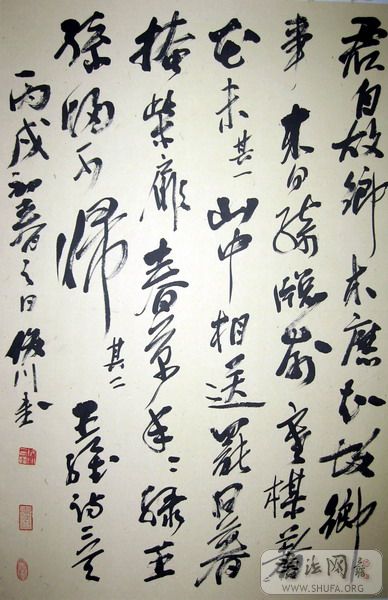 君自故鄉来應知故鄉
事来日綺窗前寒梅著
花未其一山中相送罷日暮
掩柴扉春草年々緑王
孫歸不帰其二王維詩二首
丙戌初春之日川書
書法网
WWW.SHUFA.ORG